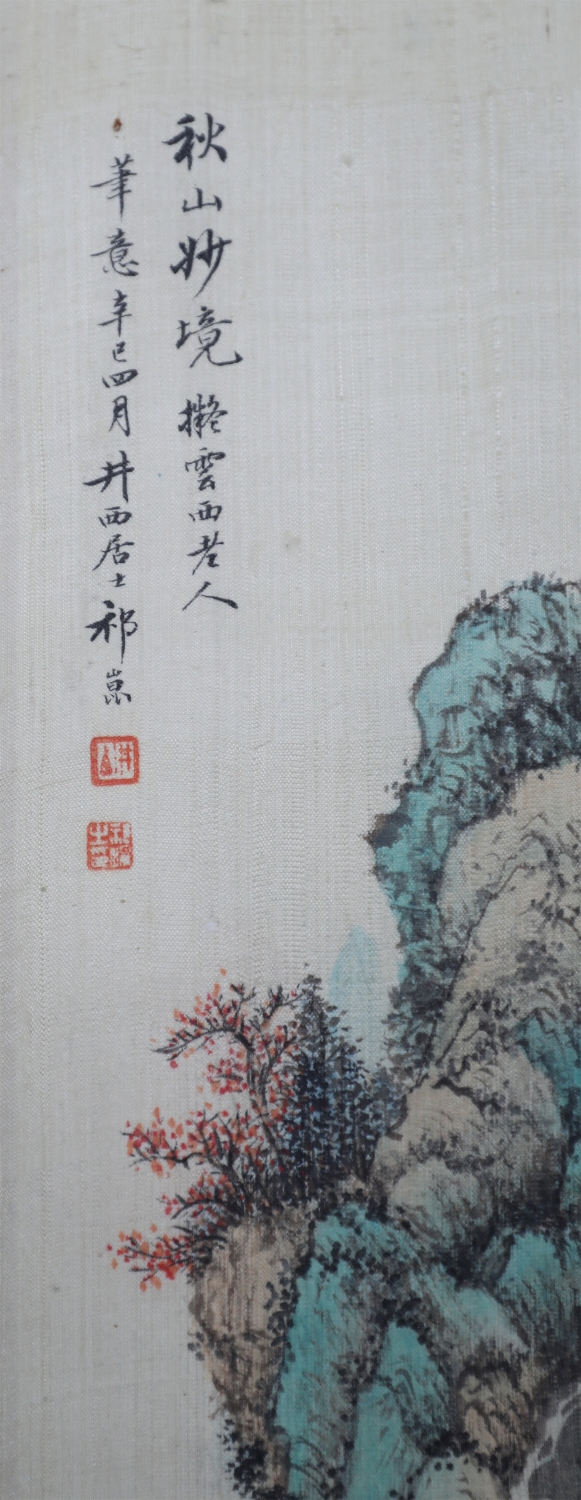 秋山妙境擬雲西老人
筆意辛巳四月井西居士祁崑